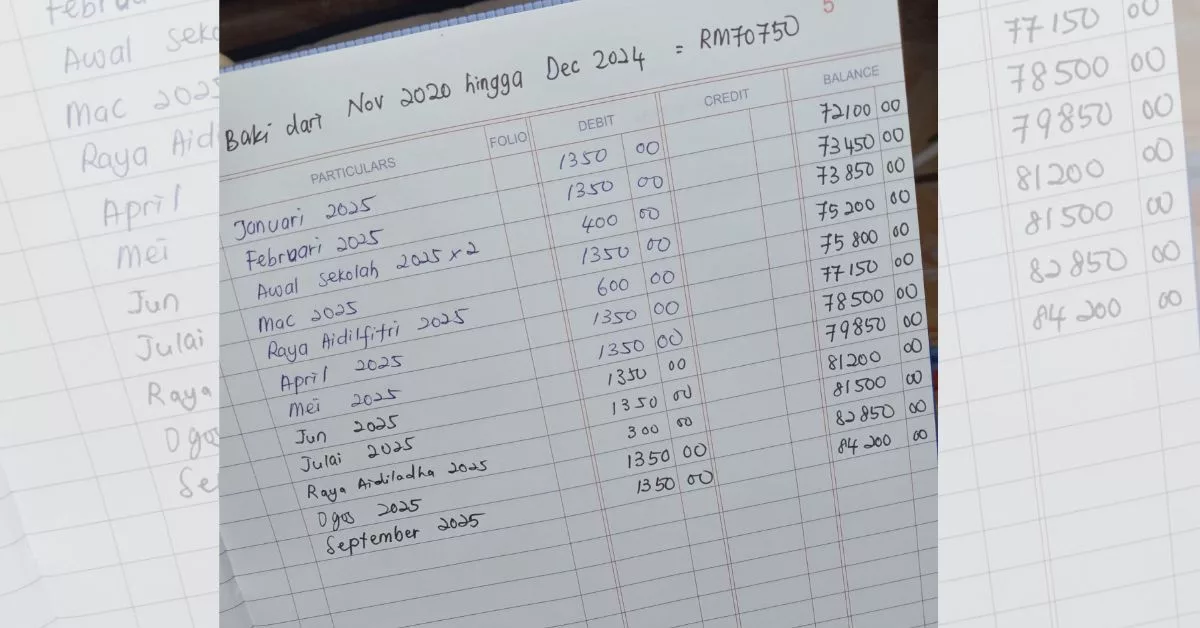 5
Baki dari Nov 2020 hingga Dec 2024 = RM70750
PARTICULARS FOLIO DEBIT CREDIT BALANCE
Januari 2025 1350 00 72100 00
Februari 2025 1350 00 73450 00
Awal sekolah 2025 x 2 400 00 73850 00
Mac 2025 1350 00 75200 00
Raya Aidilfitri 2025 600 00 75800 00
April 2025 1350 00 77150 00
Mei 2025 1350 00 78500 00
Jun 2025 1350 00 79850 00
Julai 2025 1350 00 81200 00
Raya Aidiladha 2025 300 00 81500 00
Ogos 2025 1350 00 82850 00
September 2025 1350 00 84200 00
Awal seko
Mac 2025
Raya Aid
April
Mei
Jun
Julai
Raya
Ogos
Se
77150 00
78500 00
79850 00
81200 00
81500 00
82850 00
84200 00